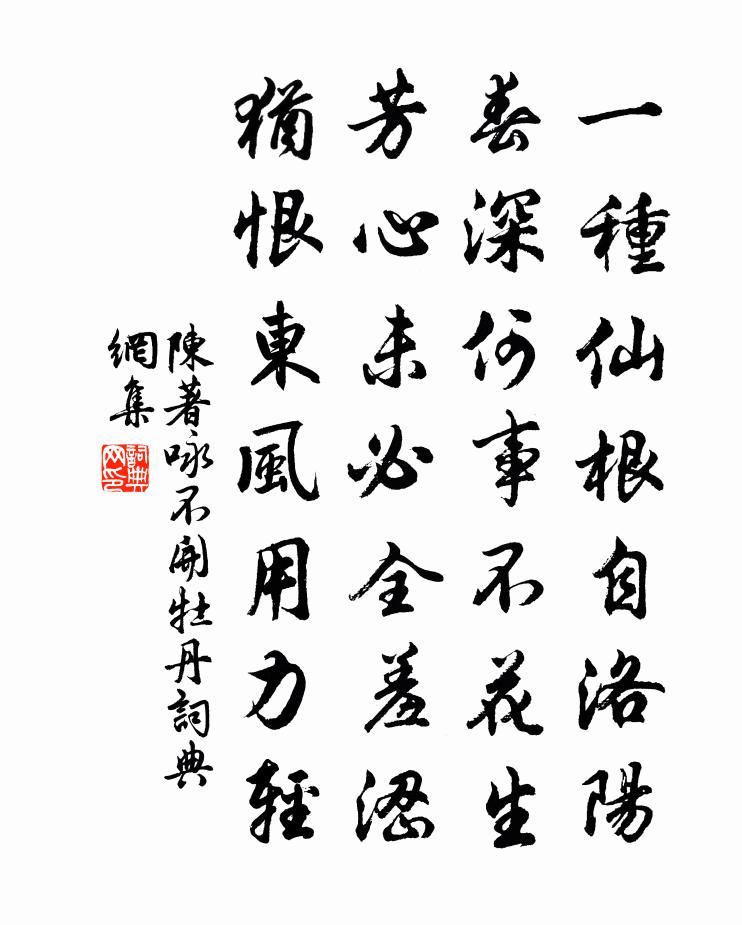 一種仙根自洛陽
春深何事不花生
芳心未必全羞澀
猶恨東風用力輕
陳著咏不開牡丹詞典
網集
詞典網印